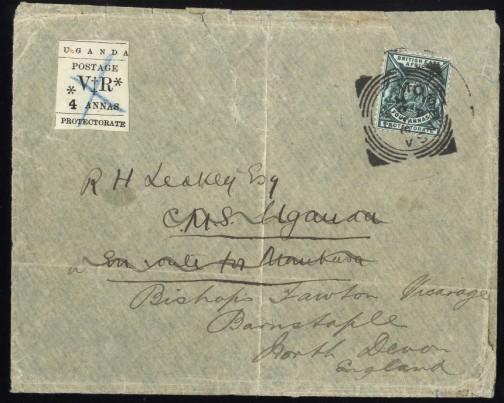 UGANDA
POSTAGE
*V†R*
4 ANNAS
PROTECTORATE
BRITISH EAST
AFRICA
PROTECTORATE
R H Leakey Esq
C.M.S. Uganda
En route for
Bishops Tawton Vicarage
Barnstaple
North Devon
England